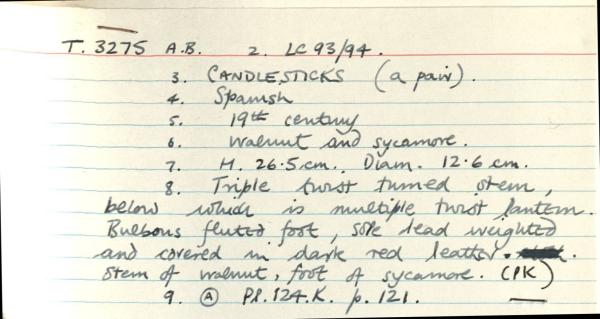 T. 3275 A.B. 2. LC 93/94.
3. CANDLESTICKS (a pair).
4. Spanish
5. 19th century
6. walnut and sycamore.
7. H. 26.5 cm. Diam. 12.6 cm.
8. Triple twist turned stem,
below which is multiple twist lantern.
Bulbous fluted foot, sole lead weighted
and covered in dark red leather.
stem of walnut, foot of sycamore. (PK)
9. Ⓐ Pl. 124.K. p. 121.